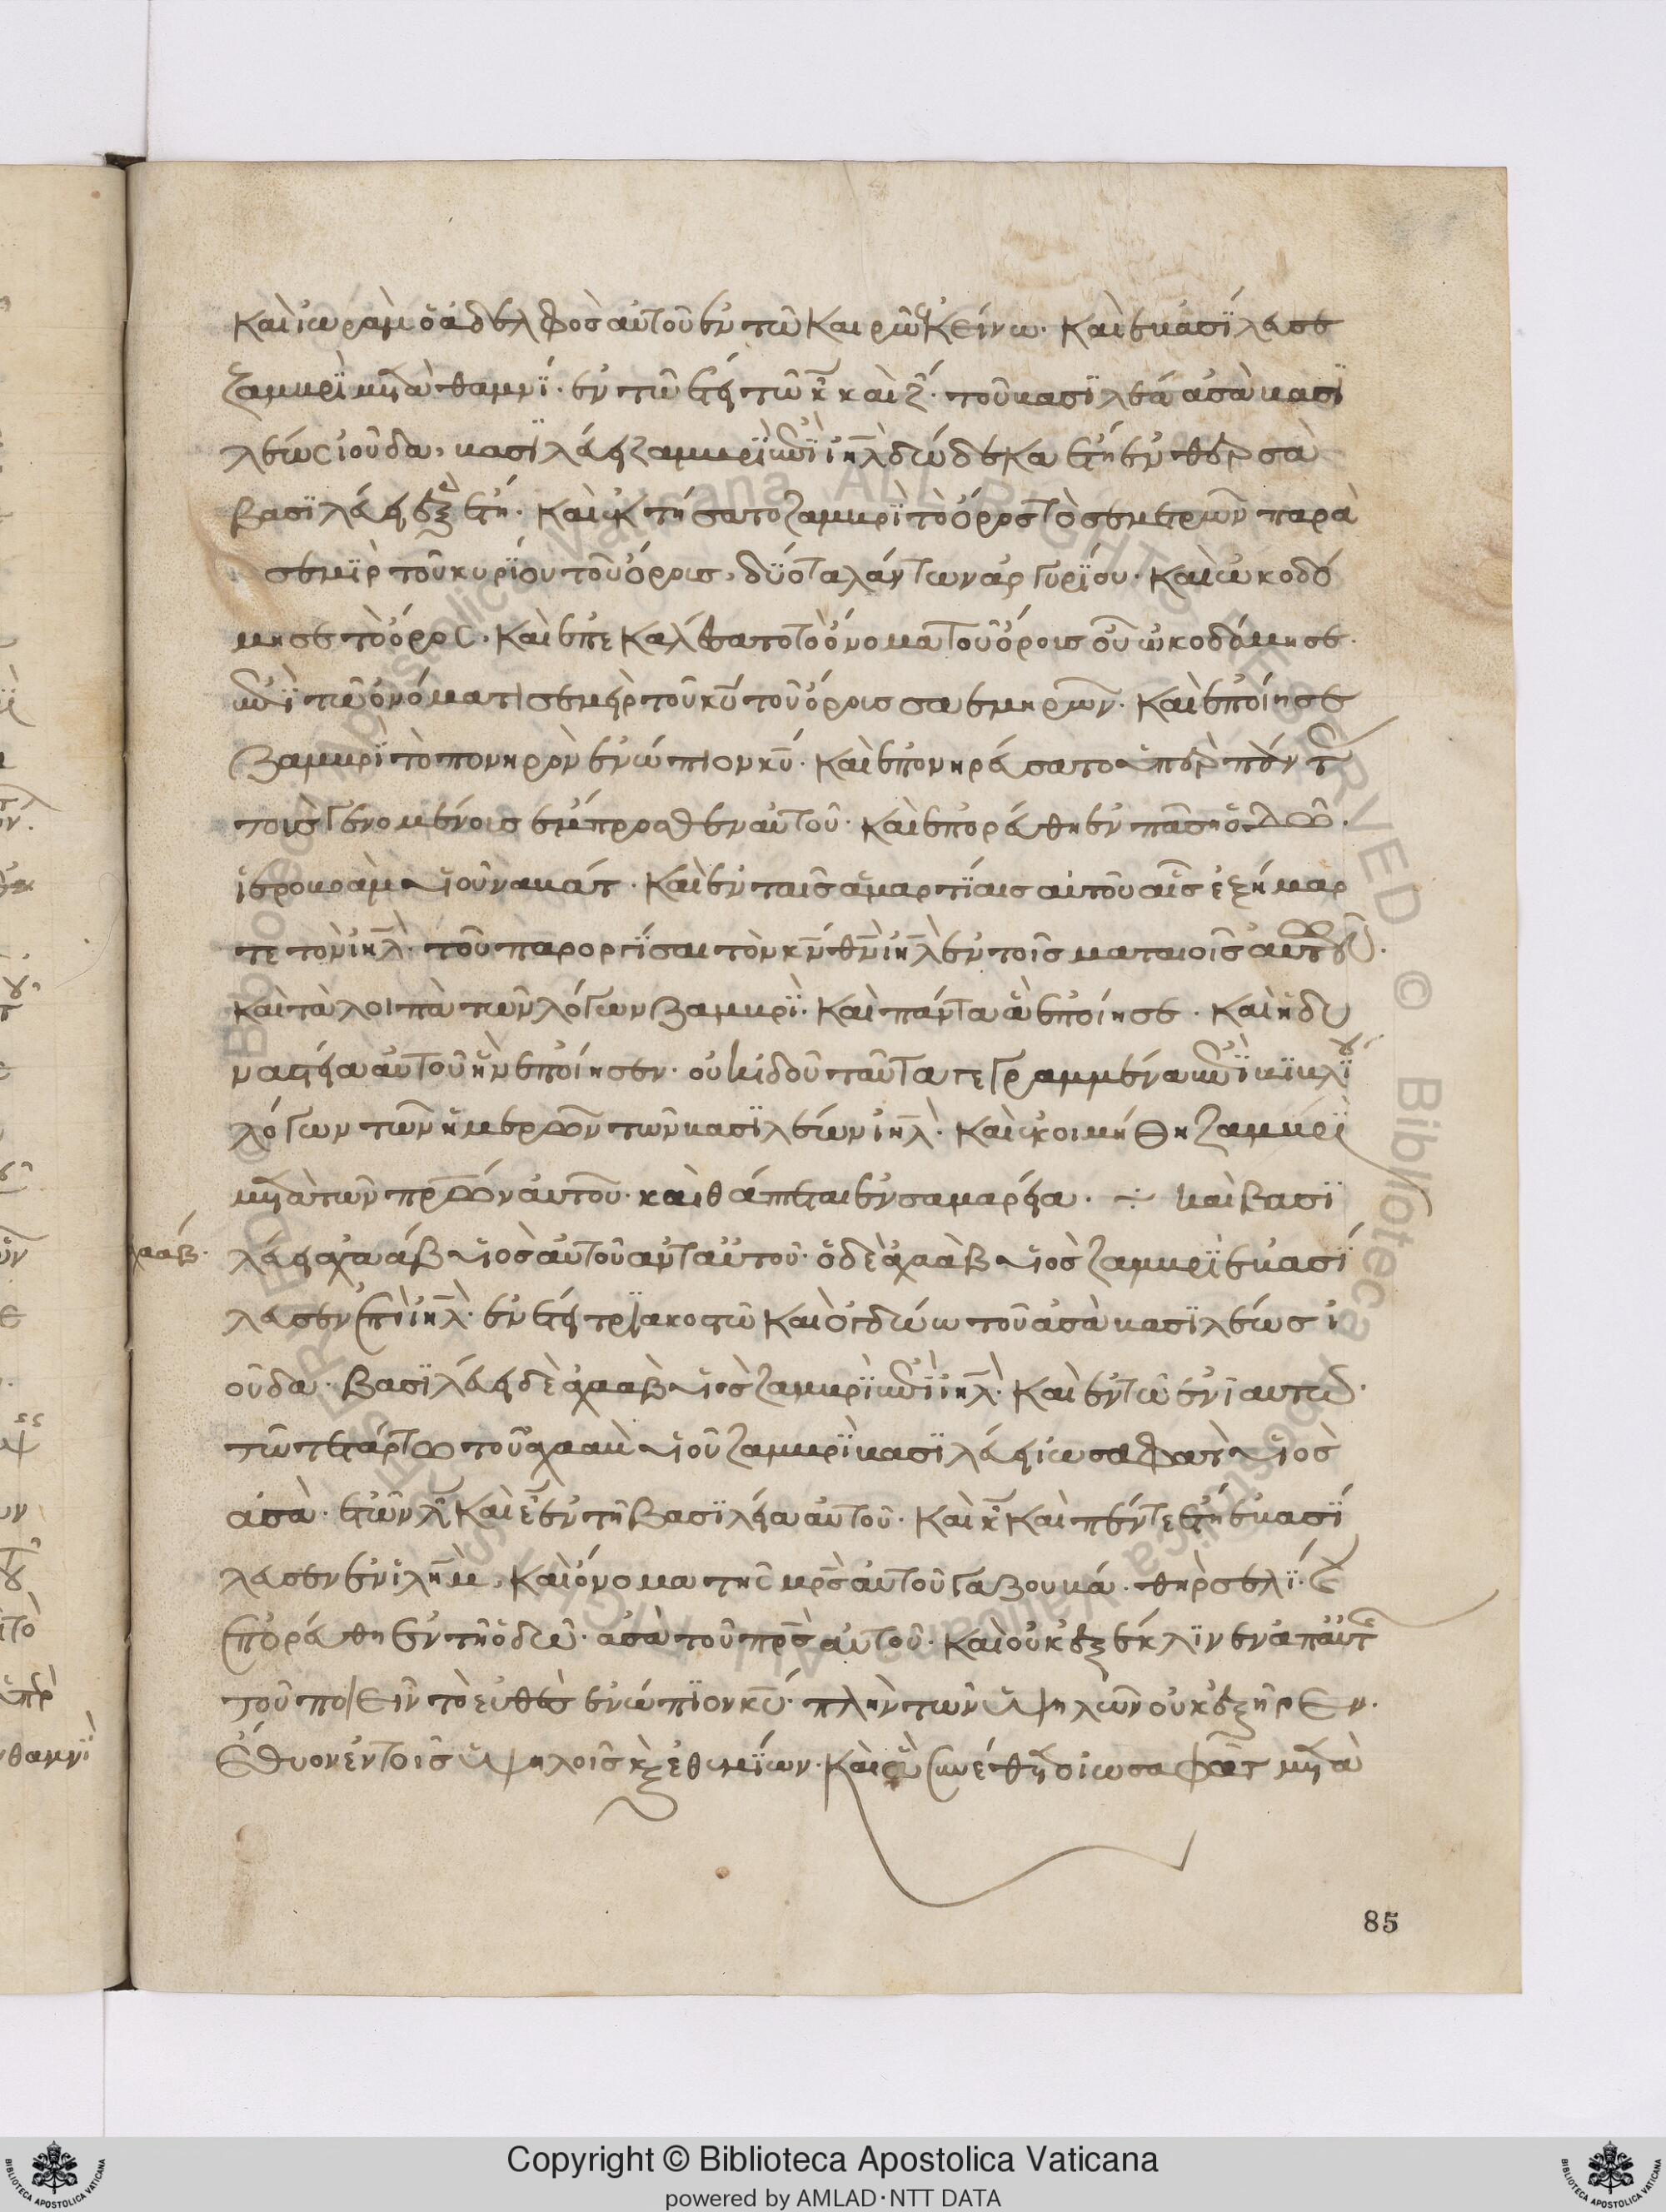 καὶ ἰωρὰμ ὁ ἀδελφὸσ αὐτοῦ ἐν τῶ καιρῶ ἐκείνω· καὶ ἐβασίλευσε
ζαμβρὶ μετὰ θαμνί· ἐν τῶ ἔτει τῶ κ̄ καὶ ζ̄· τοῦ βασιλέωσ ἀσὰ βασι
λέωσ ἰούδα, βασιλεύει ζαμβρὶ ἐπὶ ιηλ̄ δώδεκα ἔτη ἐν θερσὰ
βασιλεύει ἓξ ἔτη· καὶ ἐκτήσατο ζαμβρὶ τὸ ὄροσ τὸ σεμερὼν παρὰ
σεμὶρ τοῦ κυρίου τοῦ ὄρουσ, δύο ταλάντων ἀργυρίου· καὶ ὠκοδό
μησε τὸ ὄροσ· καὶ ἐπεκαλέσατο τὸ ὄνομα τοῦ ὄρουσ οὗ ὠκοδόμησε·
ἐπὶ τῶ ὀνόματι σεμὴρ τοῦ κῡ τοῦ ὄρουσ σαεμηρών· καὶ ἐποίησε
ζαμβρὶ τὸ πονηρὸν ἐνώπιον κῡ· καὶ ἐπονηρεύσατο ὑπὲρ πάντ
τοὺσ γενομένουσ ἔμπροσθεν αὐτοῦ· καὶ ἐπορεύθη ἐν πάση ὁδῶ·
ἱεροβοὰμ υἱοῦ ναβάτ· καὶ ἐν ταῖσ ἁμαρτίαισ αὐτοῦ αἷσ ἐξήμαρ
τε τὸν ιηλ̄· τοῦ παροργίσαι τὸν κν̄ θν̄ ιηλ̄ ἐν τοῖσ ματαίοισ αὐτῶν·
καὶ τὰ λοιπὰ τῶν λόγων ζαμβρί· καὶ πάντα ἃ ἐποίησε· καὶ ἡ δυ
ναστεία αὐτοῦ ἣν ἐποίησεν· οὐκ ἰδοῦ ταῦτα γεγραμμένα ἐπὶ βιβλίου
λόγων τῶν ἡμερῶν τῶν βασιλέων ιηλ̄· καὶ ἐκοιμήθη ζαμβρὶ
μετὰ τῶν πρ̄ων αὐτοῦ· καὶ θάπτεται ἐν σαμαρεία· ÷ καὶ βασι
αχαάβ·
λεύει ἀχαὰβ υἱὸσ αὐτοῦ ἀντ αὐτοῦ· ὁ δὲ ἀχαὰβ υἱὸσ ζαμβρὶ ἐβασί
λευσεν ἐπὶ ιηλ̄· ἐν ἔτει τριακοστῶ καὶ ὀγδόω τοῦ ἀσὰ βασιλέωσ ἰ
ούδα· βασιλεύει δὲ ἀχαὰβ υἱὸσ ζαμβρὶ ἐπὶ ιηλ̄· καὶ ἐν τῶ ἐνιαυτῶ·
τῶ τετάρτω τοῦ ἀχαὰβ υἱοῦ ζαμβρὶ βασιλεύει ἰωσαφὰτ υἱὸσ
ἀσὰ· ἐτῶν λ̄ καὶ ε̄ ἐν τῆ βασιλεία αὐτοῦ· καὶ κ̄ καὶ πέντε ἔτη ἐβασί
λευσεν ἐν ιλη̄μ, καὶ ὄνομα τῆσ μρ̄σ αὐτοῦ γαζουβά· θηρ σελί· Ἐ
πορεύθη ἐν τῆ ὁδῶ· ἀσὰ τοῦ πρ̄σ αὐτοῦ· καὶ οὐκ ἐξέκλινεν ἀπ αὐτῆσ
τοῦ ποιεῖν τὸ εὐθὲσ ἐνώπιον κῡ· πλὴν τῶν ὑψηλῶν οὐκ ἐξῆρεν·
Ἔθυον ἐν τοῖσ ὑψηλοῖσ κ ἐθυμίων· καὶ ἃ συνέθετο ἰωσαφὰτ μετὰ
85